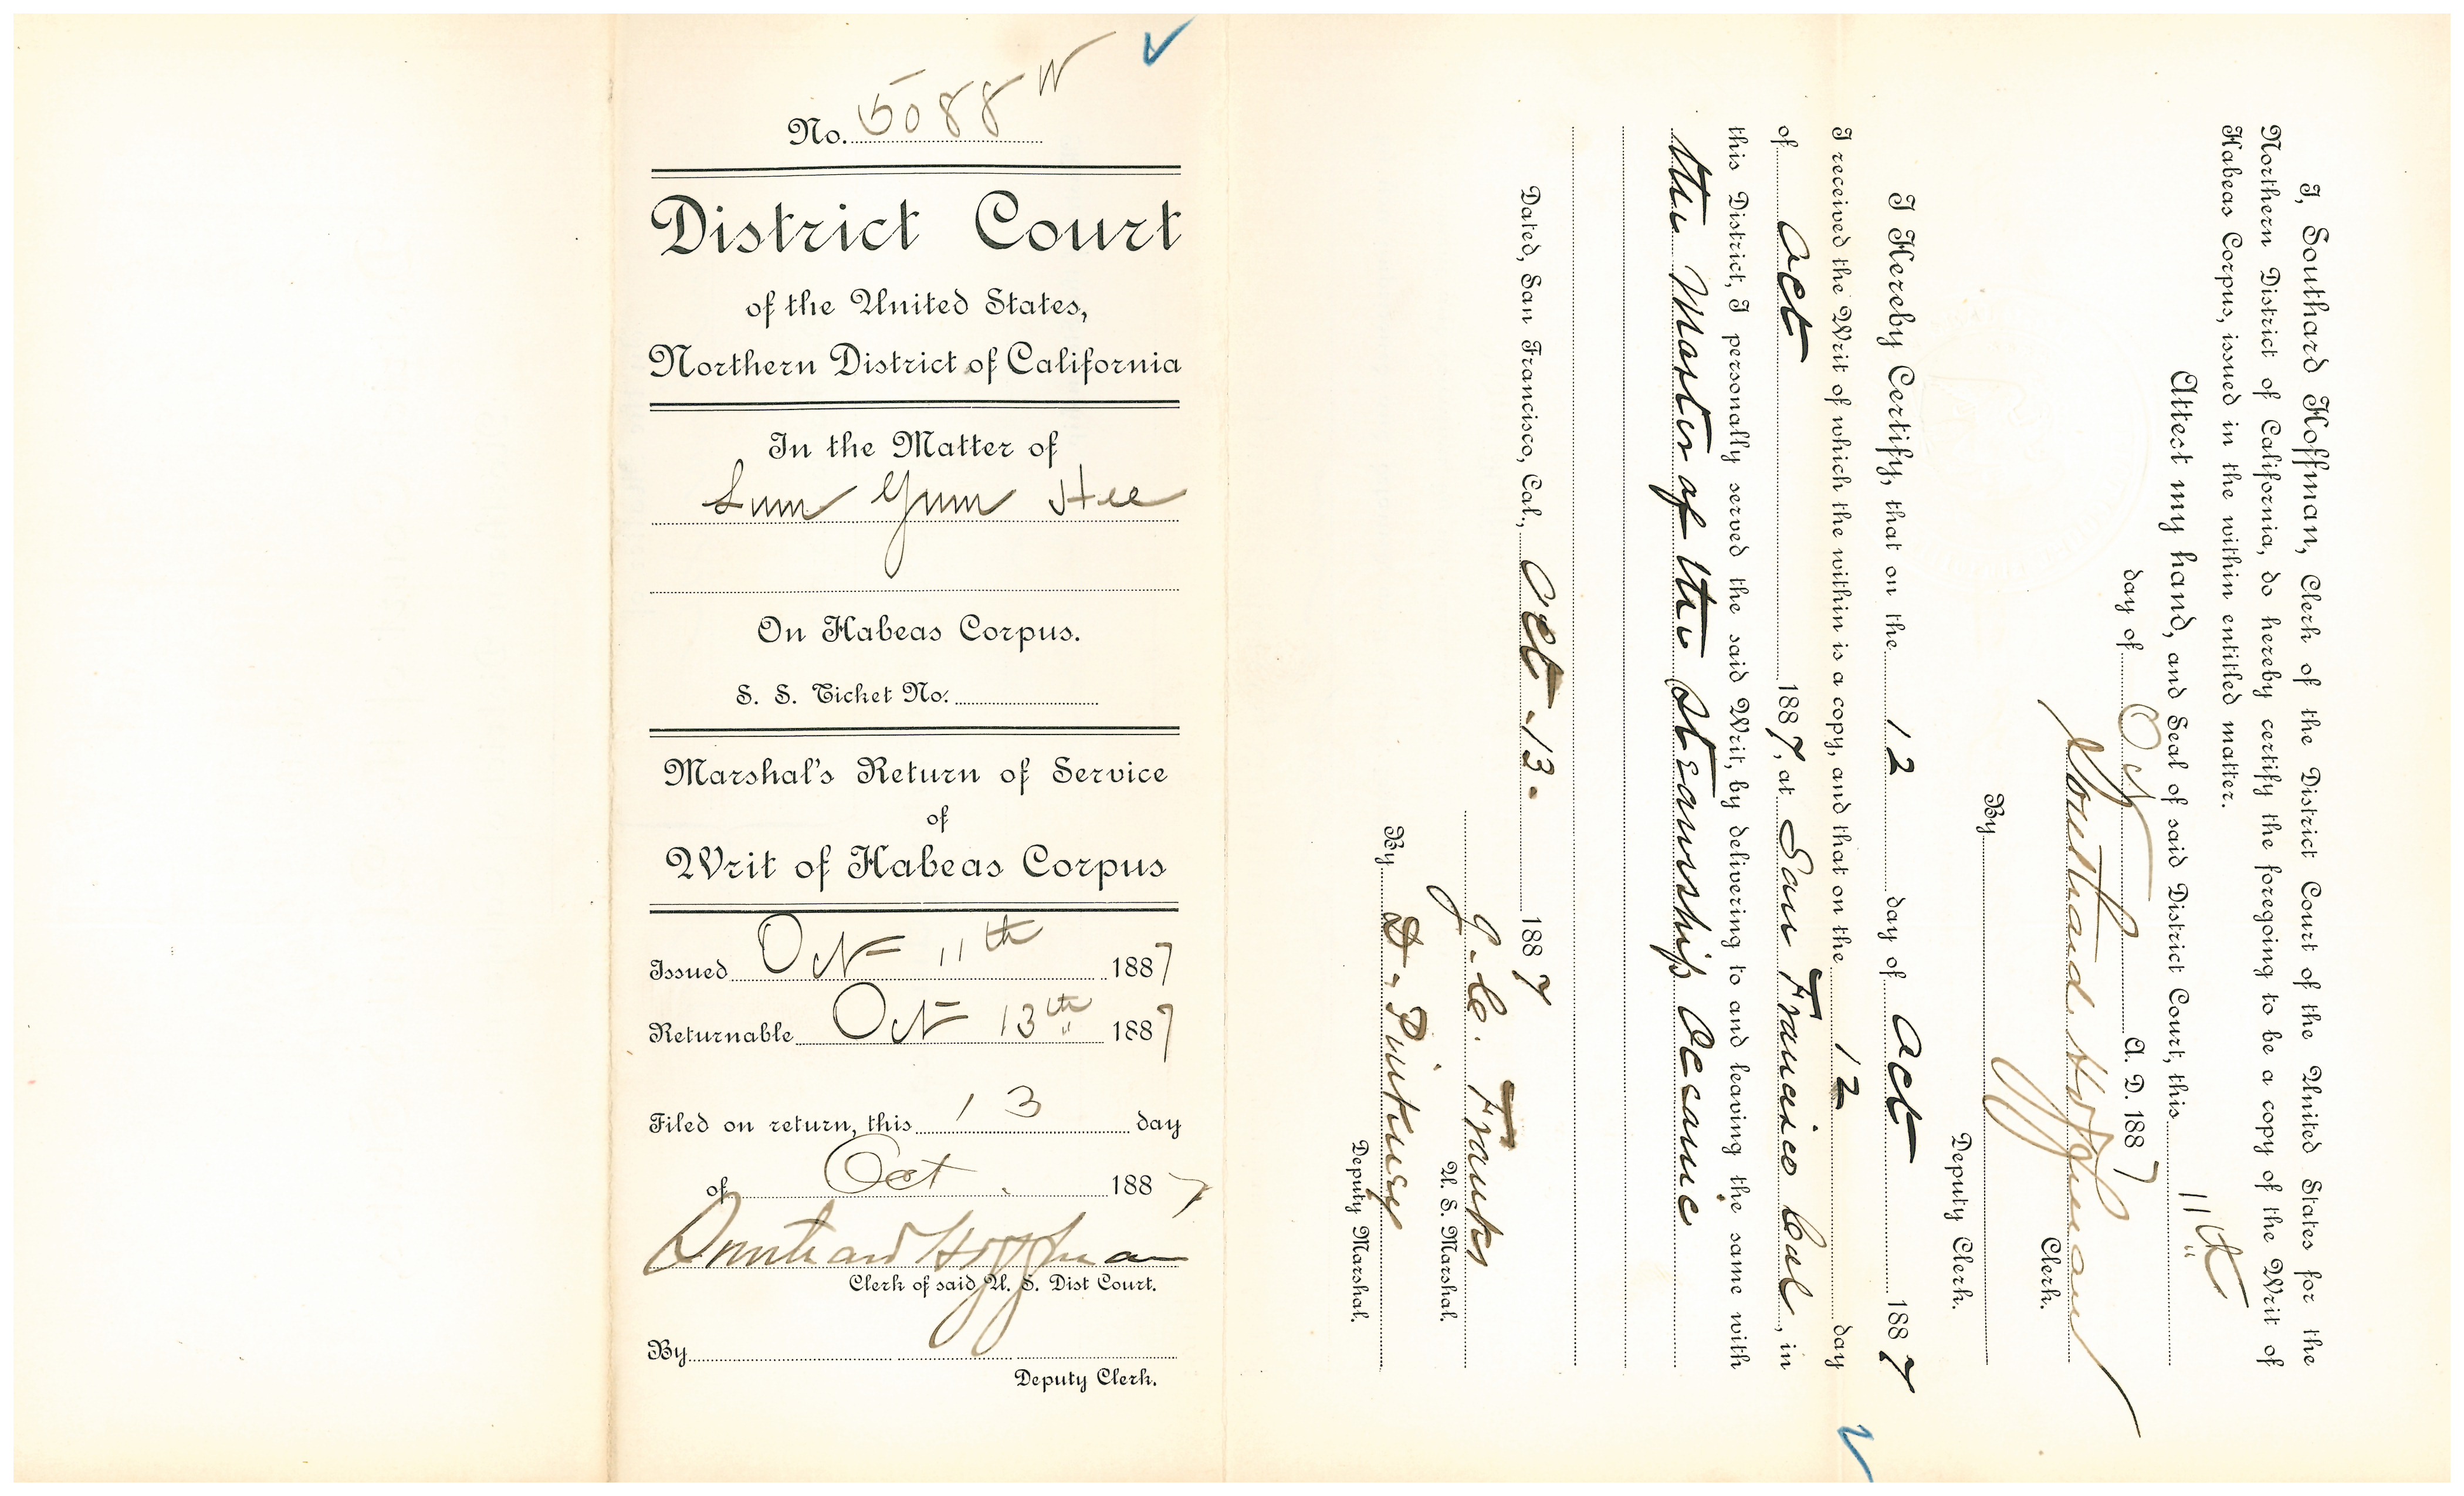 No. 5088 W
District Court
of the United States,
Northern District of California
In the Matter of
Lum Yum Hee
On Habeas Corpus.
S. S. Ticket No.
Marshal's Return of Service
of
Writ of Habeas Corpus
Issued Oct 11th 1887
Returnable Oct 13th 1887
Filed on return, this 13 day
of Oct. 1887
Southard Hoffman
Clerk of said U. S. Dist Court.
By
Deputy Clerk.
I, Southard Hoffman, Clerk of the District Court of the United States for the
Northern District of California, do hereby certify the foregoing to be a copy of the Writ of
Habeas Corpus, issued in the within entitled matter.
Attest my hand, and Seal of said District Court, this 11th
day of Oct A. D. 1887
Southard Hoffman
Clerk.
By
Deputy Clerk.
I Hereby Certify, that on the 12 day of Oct 1887
I received the Writ of which the within is a copy, and that on the 12 day
of Oct 1887, at San Francisco Cal, in
this District, I personally served the said Writ, by delivering to and leaving the same with
the Master of the Steamship Oceanic
Dated, San Francisco, Cal., Oct. 13. 1887
J. C. Franks
U. S. Marshal.
By D. Pinkney
Deputy Marshal.